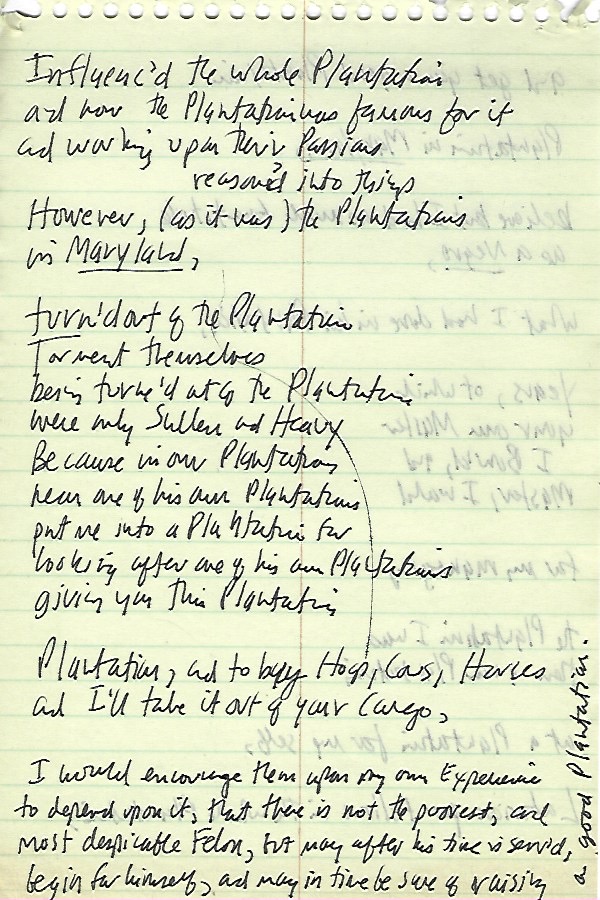 Influenc'd the whole Plantation
and now the Plantation was famous for it
and working upon their Passions
reason'd into things
However, (as it was) the Plantations
in Maryland,
turn'd out of the Plantation
Torment themselves
being turn'd out of the Plantation
were only Sullen and Heavy
Because in our Plantations
near one of his own Plantations
put me into a Plantation for
looking after one of his own Plantations
giving you this Plantation
Plantation, and to buy Hogs, Cows, Horses
and I'll take it out of your Cargo,
I would encourage them upon my own Experience
to depend upon it, that there is not the poorest, and
most despicable Felon, but may after his time is serv'd,
begin for himself, and may in time be sure of raising
a good Plantation.